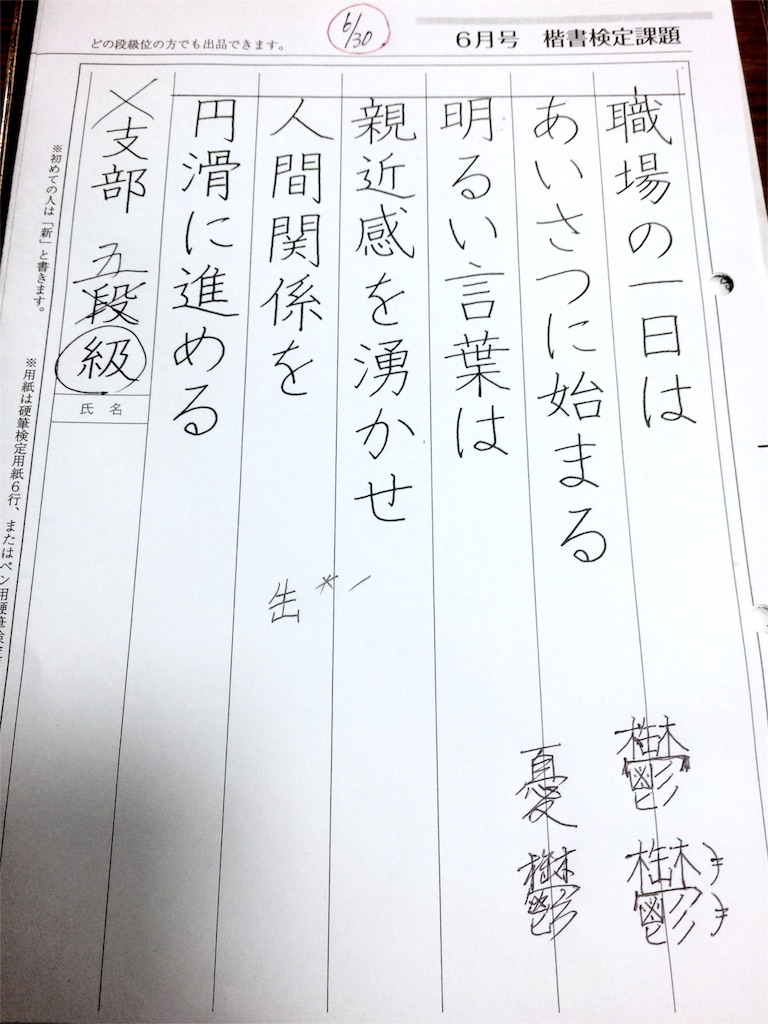 6/30
どの段級位の方でも出品できます。
6月号 楷書検定課題
職場の一日は
あいさつに始まる
明るい言葉は
親近感を湧かせ
人間関係を
円滑に進める
支部 五段
級
氏名
※初めての人は「新」と書きます。
※用紙は硬筆検定用紙6行、またはペン用硬筆検定
鬱
鬱
憂
鬱